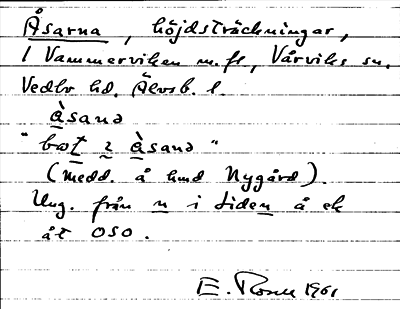 Åsarna, höjdsträckningar,
i Vammerviken m. fl, Vårviks sn.
Vedbo hd. Älvsb. l.
åsanə
"bət i åsanə"
(medd. å hmd Nygård).
Ung. från n i tiden å ek
åt OSO.
E. Rosell 1961